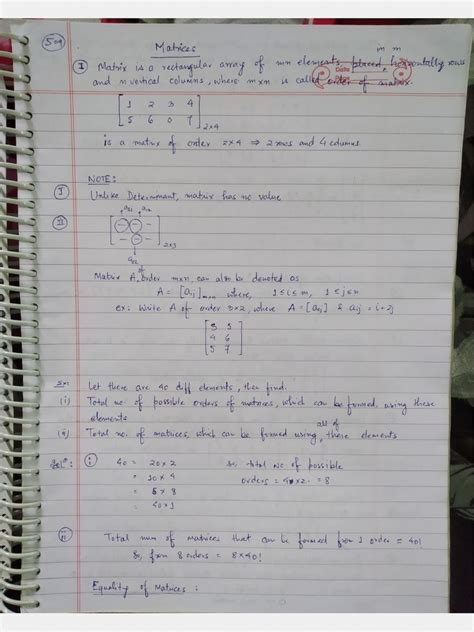 509
Matrices
m m
I Matrix is a rectangular array of mn elements, placed, horizontally rows
and n vertical columns, where m×n is called order of matrix.
1 2 3 4
5 6 0 7 2×4
is a matrix of order 2×4 ⇒ 2 rows and 4 columns.
NOTE:
I Unlike Determinant, matrix has no value
II
2×3
Matrix A, of order m×n, can also be denoted as
A = [aij]m×n where, 1 ≤ i ≤ m, 1 ≤ j ≤ n
ex: Write A of order 3×2, where A = [aij] & aij = i+2j
3 5
4 6
5 7
Ex: Let there are 40 diff elements, then find.
(i) Total no. of possible orders of matrices, which can be formed, using these
elements
(ii) Total no. of matrices, which can be formed using, all of these elements
Solⁿ: (i) 40 = 20 × 2 so, total no of possible
= 10 × 4 orders = 4×2 = 8
= 5 × 8
= 40 × 1
ii Total num of matrices that can be formed from 1 order = 40!
So, from 8 orders = 8×40!
Equality of Matrices :